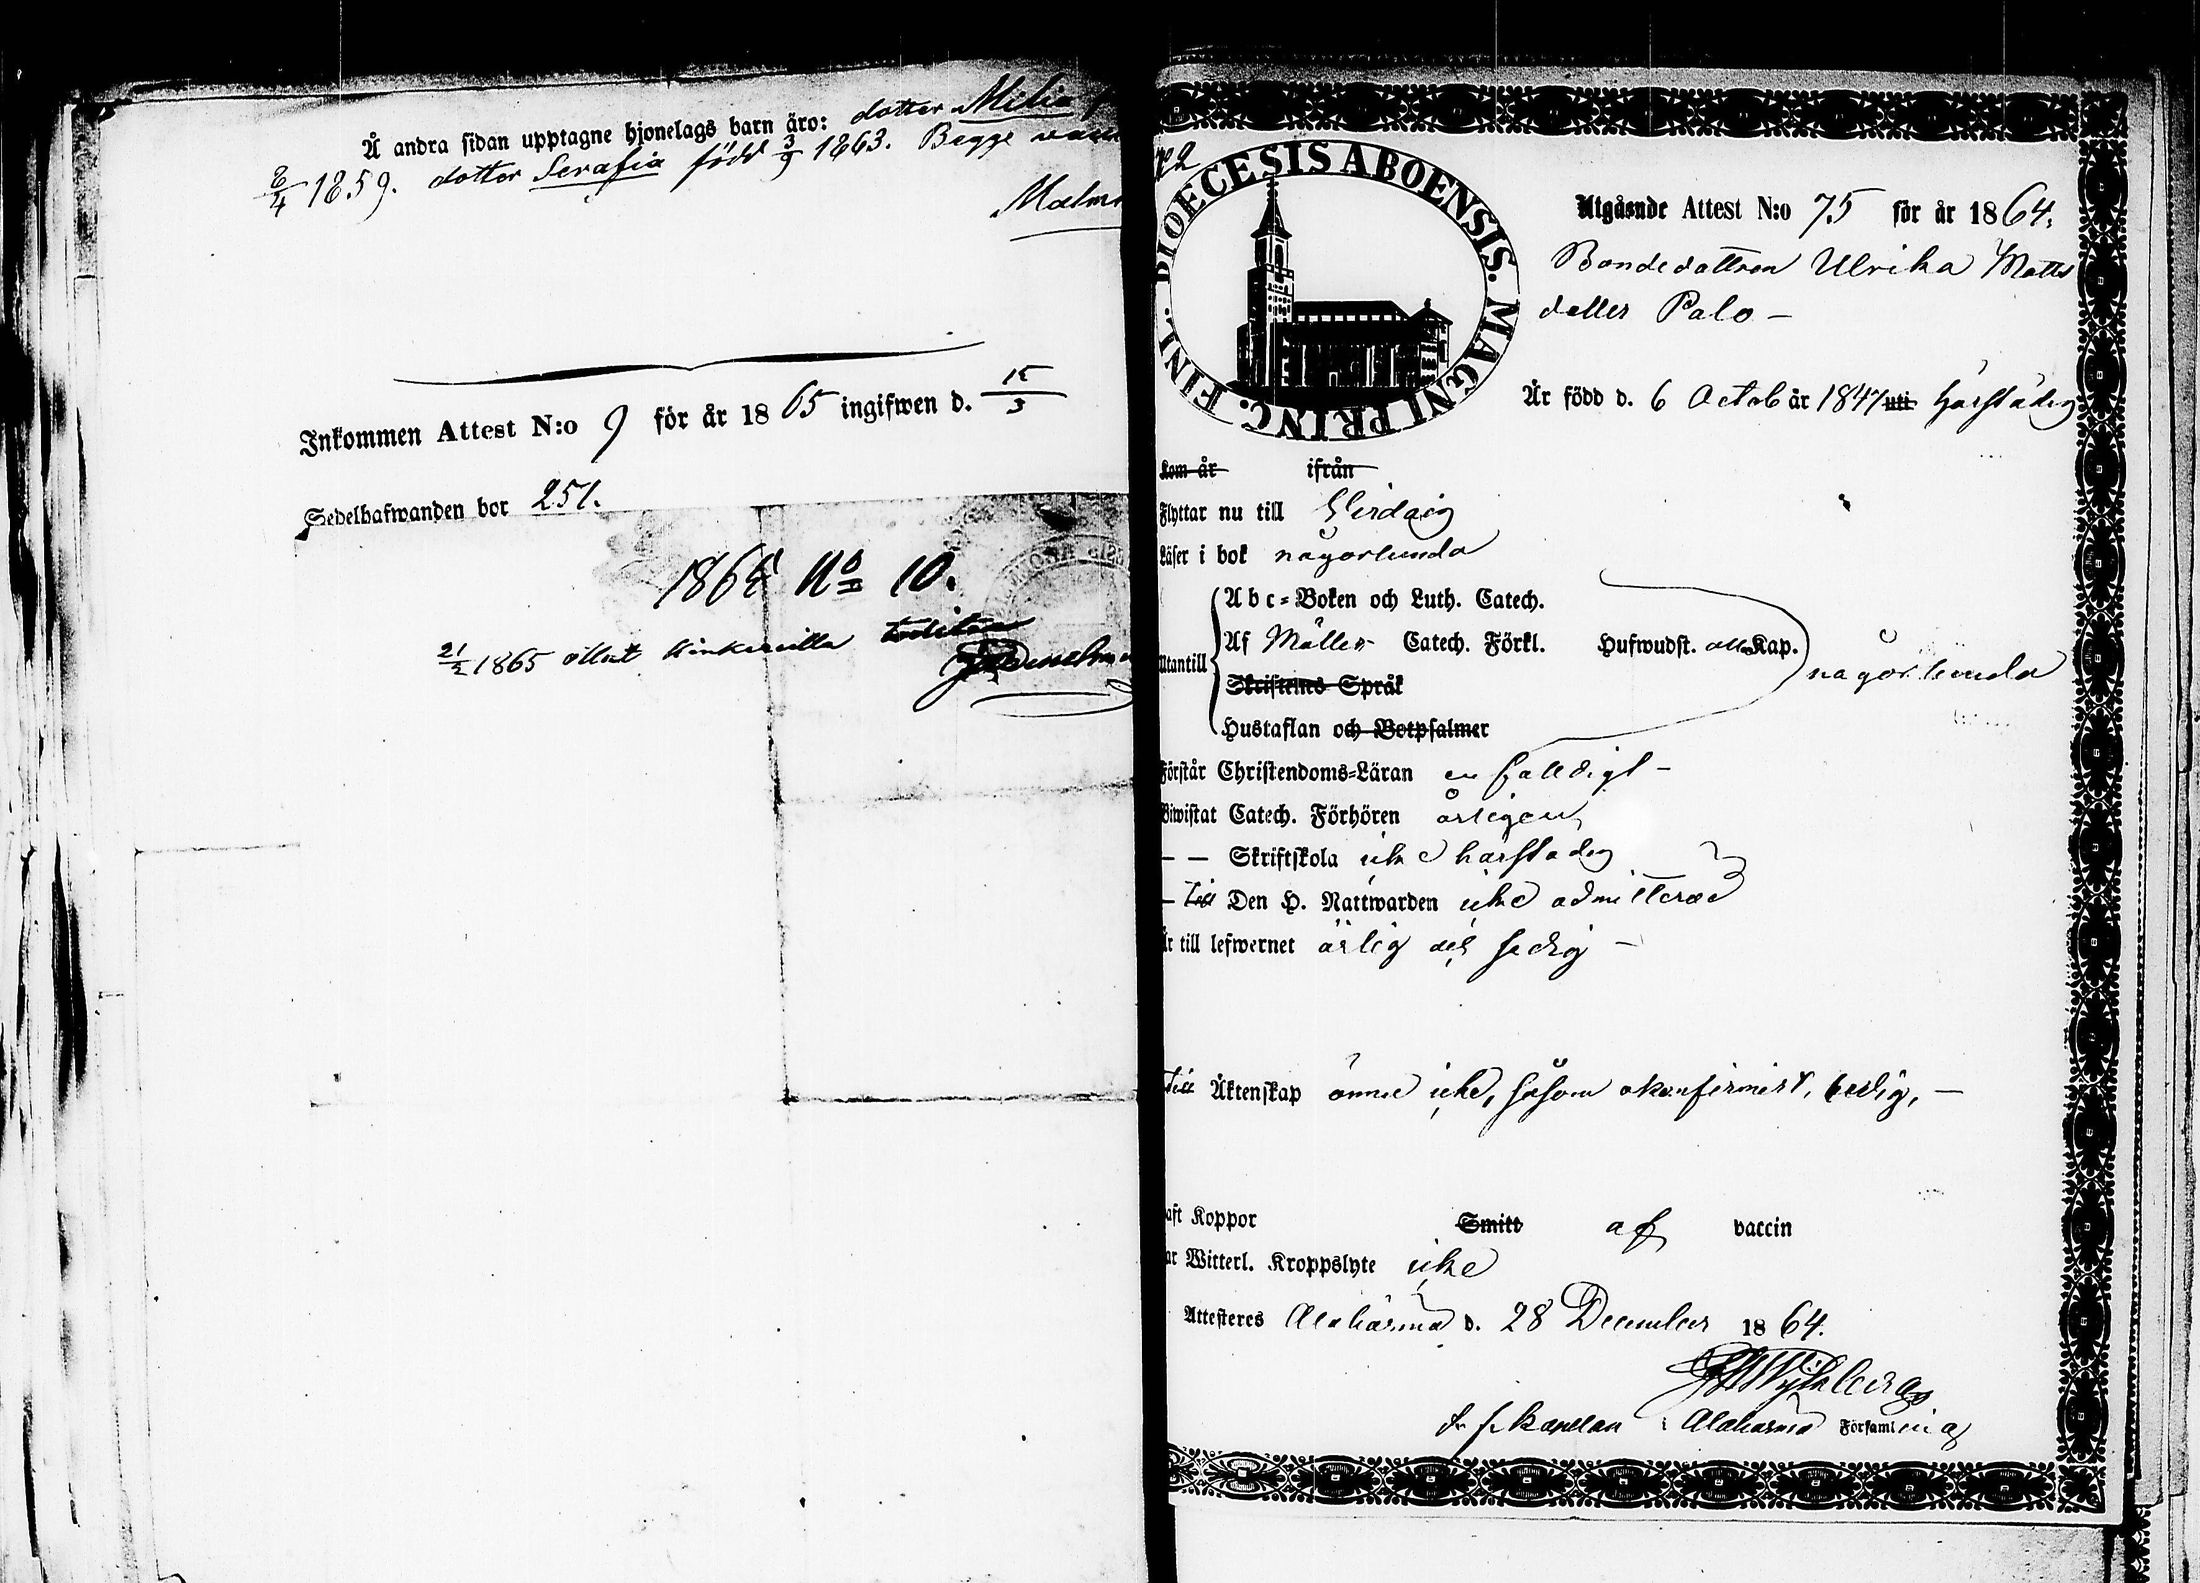 Å andra sidan upptagne hjonelags barn äro: dotter Milia
8/4 1859. dotter Serafia född 3/9 1863. Begge
Inkommen Attest N:o 9 för år 1865 ingifwen d. 15/3
Sedelhafwanden bor 251.
1865 No 10.
21/2 1865 ollut kinkereillä
DIOECESIS ABOENSIS. MAGNI PRINC. FINL.
Utgående Attest N:o 75 för år 1864.
Bondedottren Ulrika Matts
dotter Palo –
Är född d. 6 Octob år 1847 uti härstädes
Kom år ifrån
Flyttar nu till
Läser i bok någorlunda
Utantill
Abc-Boken och Luth. Catech.
Af Möllers Catech. Förkl. Hufwudst. alla Kap.
någorlunda
Skriftenes Språk
Hustaflan och Botpsalmer
Förstår Christendoms-Läran enfaldigt –
Biwistat Catech. Förhören årligen,
– – Skriftskola icke härstädes
– Till Den H. Nattwarden icke admitterad
Är till lefwernet ärlig och sedig –
Till Äktenskap ännu icke, såsom okonfirmert, ledig, –
aft Koppor Smitt af vaccin
ar Witterl. Kroppslyte icke
Attesteres Alahärmä d. 28 December 1864.
Kapellan i Alahärmä Församling